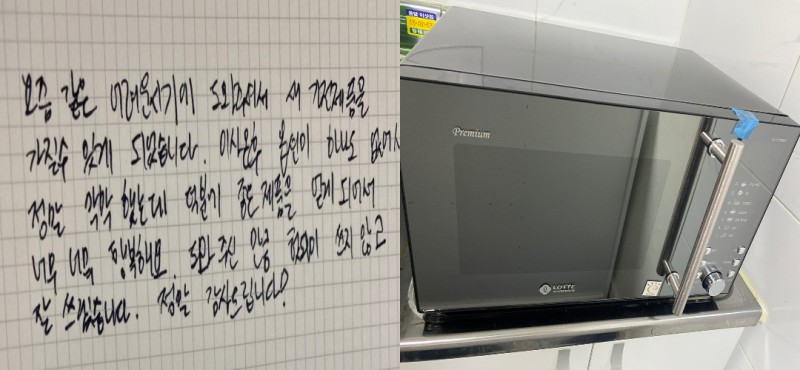 요즘 같은 어려운시기에 도와주셔서 새 가전제품을
가질수 있게 되었습니다. 이사온후 옵션이 하나도 없어서
정말 막막 했는데 덕분에 좋은 제품을 얻게 되어서
너무 너무 행복해요. 도와 주신 만큼 헛되이 쓰지 않고
잘 쓰겠습니다. 정말 감사드립니다!
Premium
LOTTE